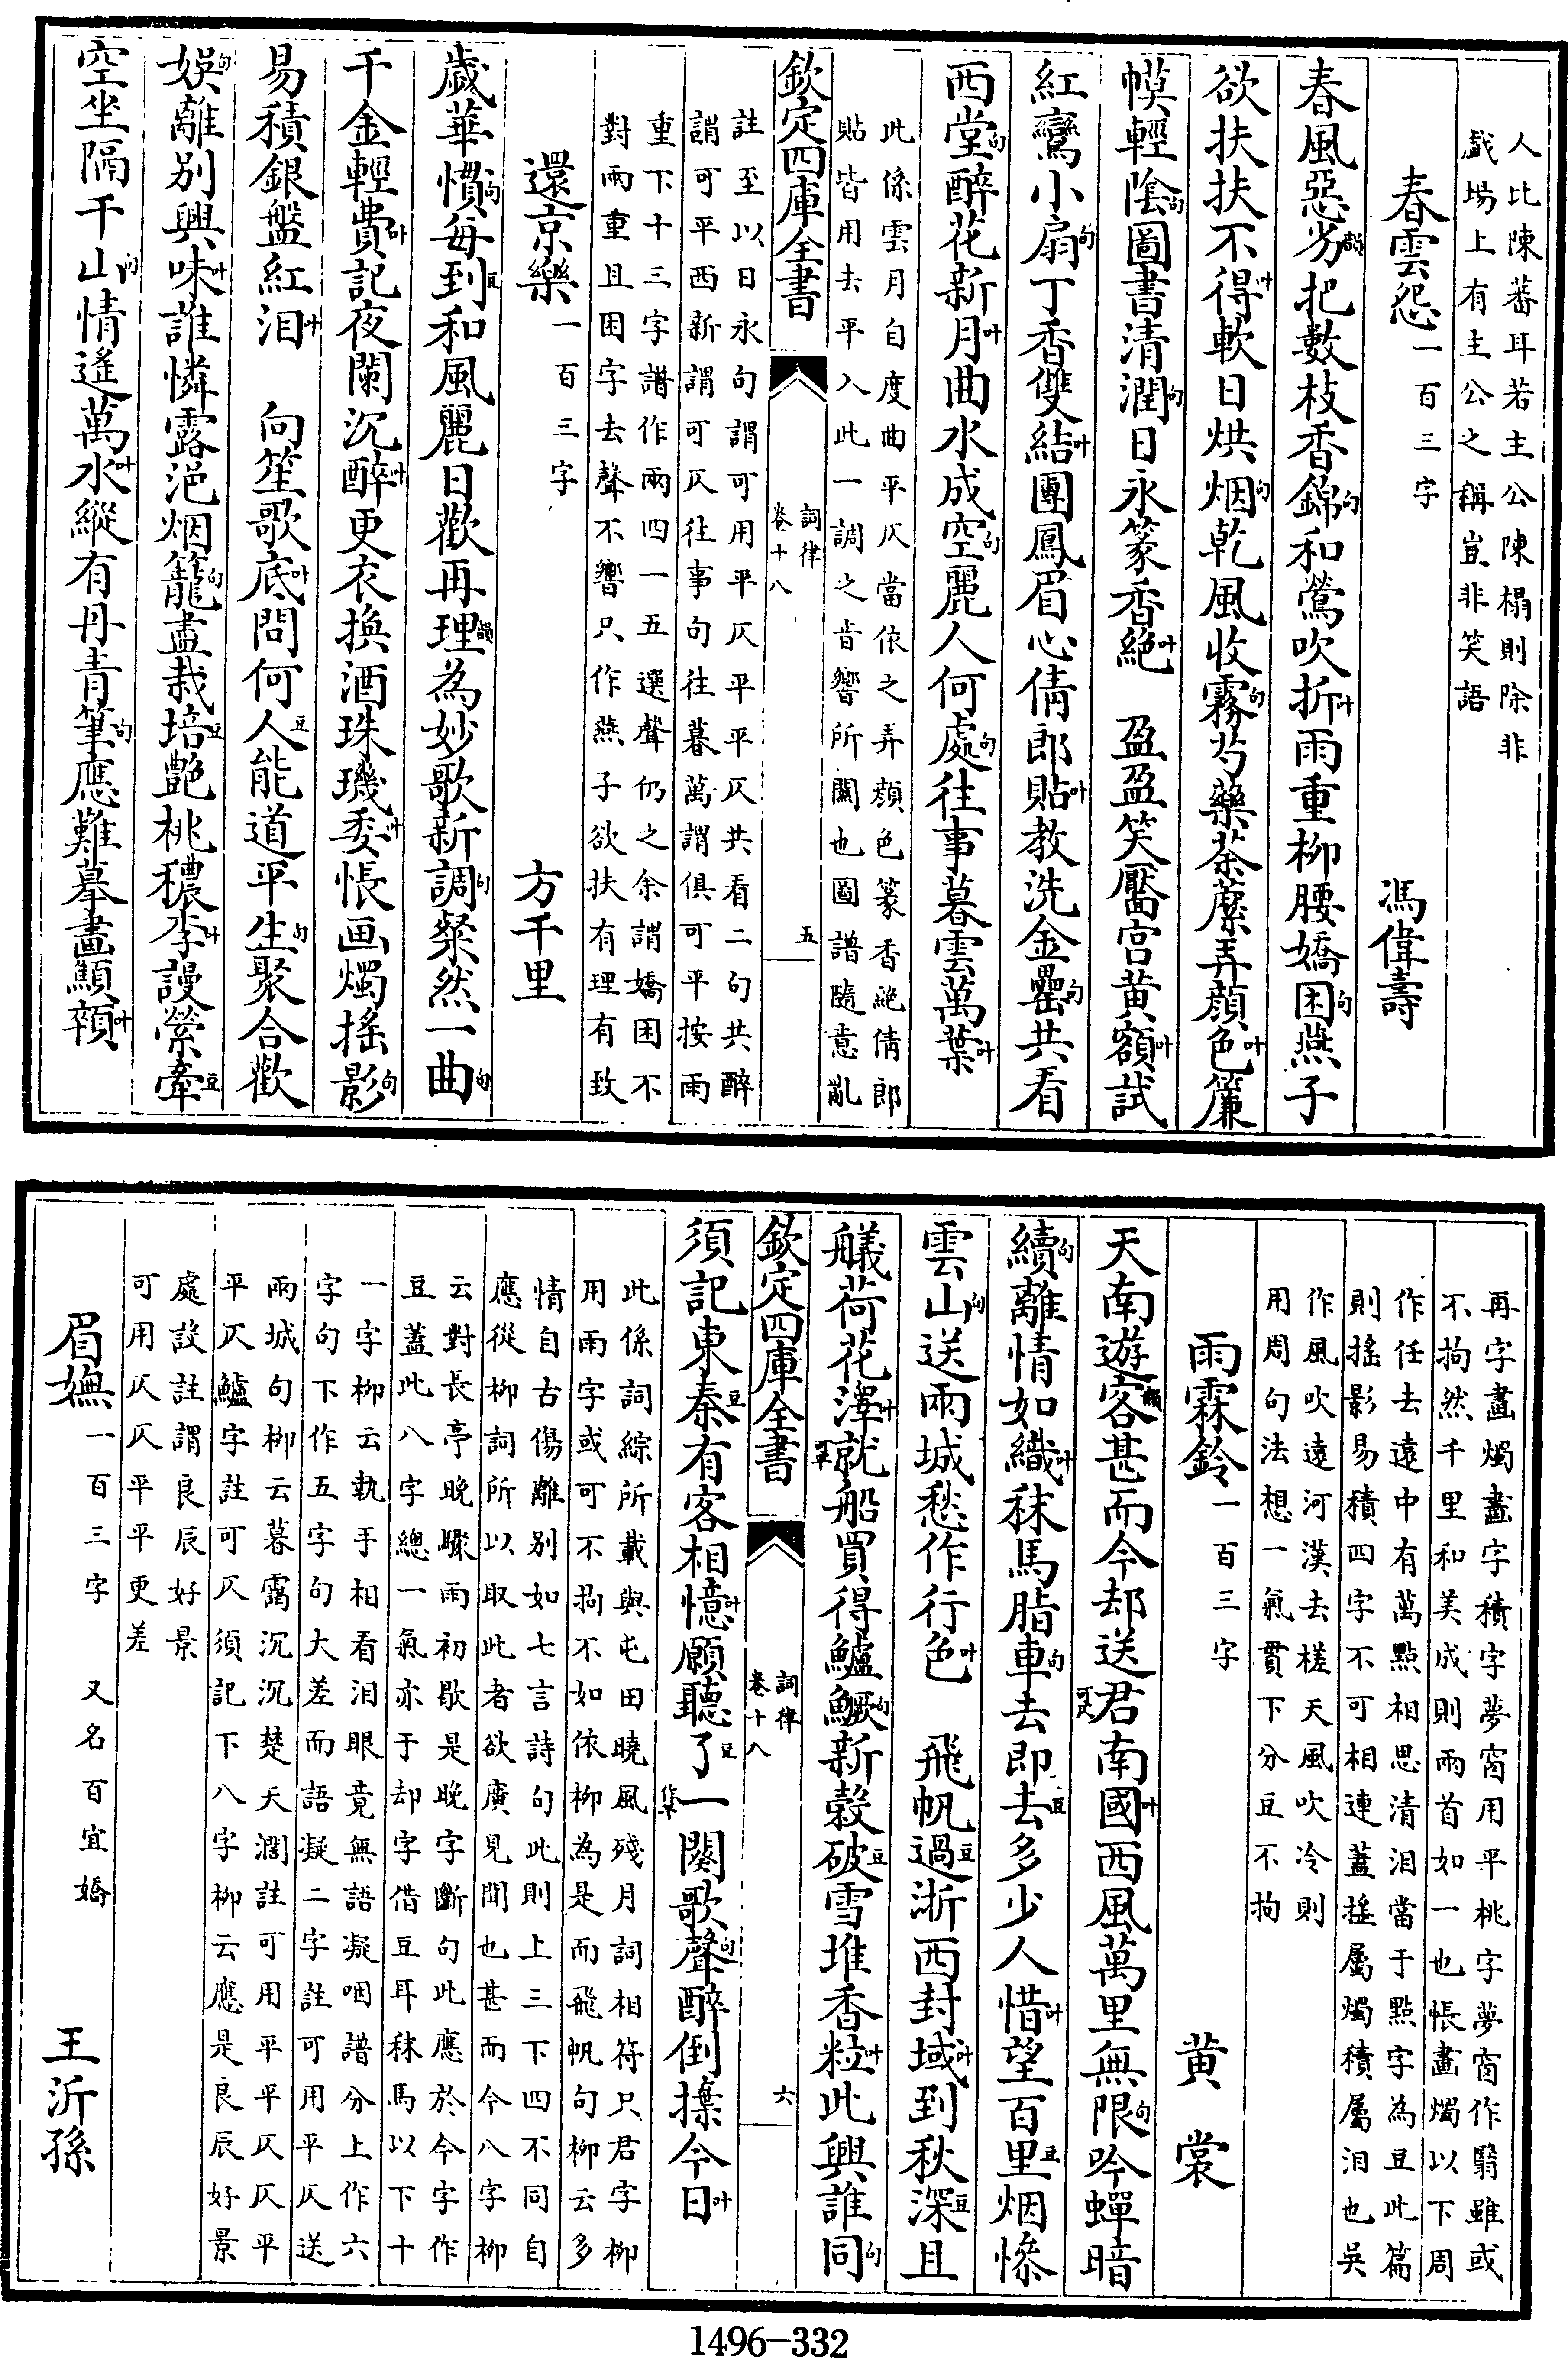 人比陳蕃耳若主公陳榻則除非
戲場上有主公之稱豈非笑語
春雲怨一百三字 馮偉壽
春風惡劣韻把數枝香錦句和鶯吹折叶雨重柳腰嬌困句燕子
欲扶扶不得叶軟日烘烟句乾風收霧句芍藥荼蘼弄顏色叶簾
幙輕陰句圖書清潤句日永篆香絕叶 盈盈笑靨宮黃額叶試
紅鸞小扇句丁香雙結叶團鳳眉心倩郎貼叶教洗金罍句共看
西堂句醉花新月叶曲水成空句麗人何處句往事暮雲萬葉叶
此係雲月自度曲平仄當依之弄顏色篆香絕倩郎
貼皆用去平入此一調之音響所關也圖譜隨意亂
欽定四庫全書
詞律
卷十八
五
註至以日永句謂可用平仄平平仄共看二句共醉
謂可平西新謂可仄往事句往暮萬謂俱可平按雨
重下十三字譜作兩四一五選聲仍之余謂嬌困不
對雨重且困字去聲不響只作燕子欲扶有理有致
還京樂一百三字 方千里
歲華慣句每到豆和風麗日歡再理韻為妙歌新調句粲然一曲句
千金輕費叶記夜闌沉醉叶更衣換酒珠璣委叶悵画燭搖影句
易積銀盤紅泪叶 向笙歌底叶問何人豆能道平生句聚合歡
娛句離別興味叶誰憐露浥烟籠句盡栽培豆艷桃穠李叶謾縈牽豆
空坐隔千山句情遙萬水叶縱有丹青筆句應難摹畫顦顇叶
再字畫燭畫字積字夢窗用平桃字夢窗作翳雖或
不拘然千里和美成則兩首如一也悵畫燭以下周
作任去遠中有萬點相思清泪當于點字為豆此篇
則搖影易積四字不可相連蓋搖屬燭積屬泪也吳
作風吹遠河漢去槎天風吹冷則
用周句法想一氣貫下分豆不拘
雨霖鈴一百三字 黃裳
天南遊客韻甚而今却送可仄君南國叶西風萬里無限句吟蟬暗
續句離情如織叶秣馬脂車句去即去豆多少人惜叶望百里豆烟慘
雲山句送兩城愁作行色叶 飛帆過豆浙西封域叶到秋深豆且
艤荷花澤叶就可平船買得鱸鱖句新穀破豆雪堆香粒叶此興誰同句
欽定四庫全書
詞律
卷十八
六
須記東秦豆有客相憶叶願聽了豆一作平闋歌聲句醉倒拚今日叶
此係詞綜所載與屯田曉風殘月詞相符只君字柳
用雨字或可不拘不如依柳為是而飛帆句柳云多
情自古傷離別如七言詩句此則上三下四不同自
應從柳詞所以取此者欲廣見聞也甚而今八字柳
云對長亭晚驟雨初歇是晚字斷句此應於今字作
豆蓋此八字總一氣亦于却字借豆耳秣馬以下十
一字柳云執手相看泪眼竟無語凝咽譜分上作六
字句下作五字句大差而語凝二字註可用平仄送
兩城句柳云暮靄沉沉楚天濶註可用平平仄仄平
平仄鱸字註可仄須記下八字柳云應是良辰好景
處設註謂良辰好景
可用仄仄平平更差
眉嫵一百三字 又名百宜嬌 王沂孫
1496-332